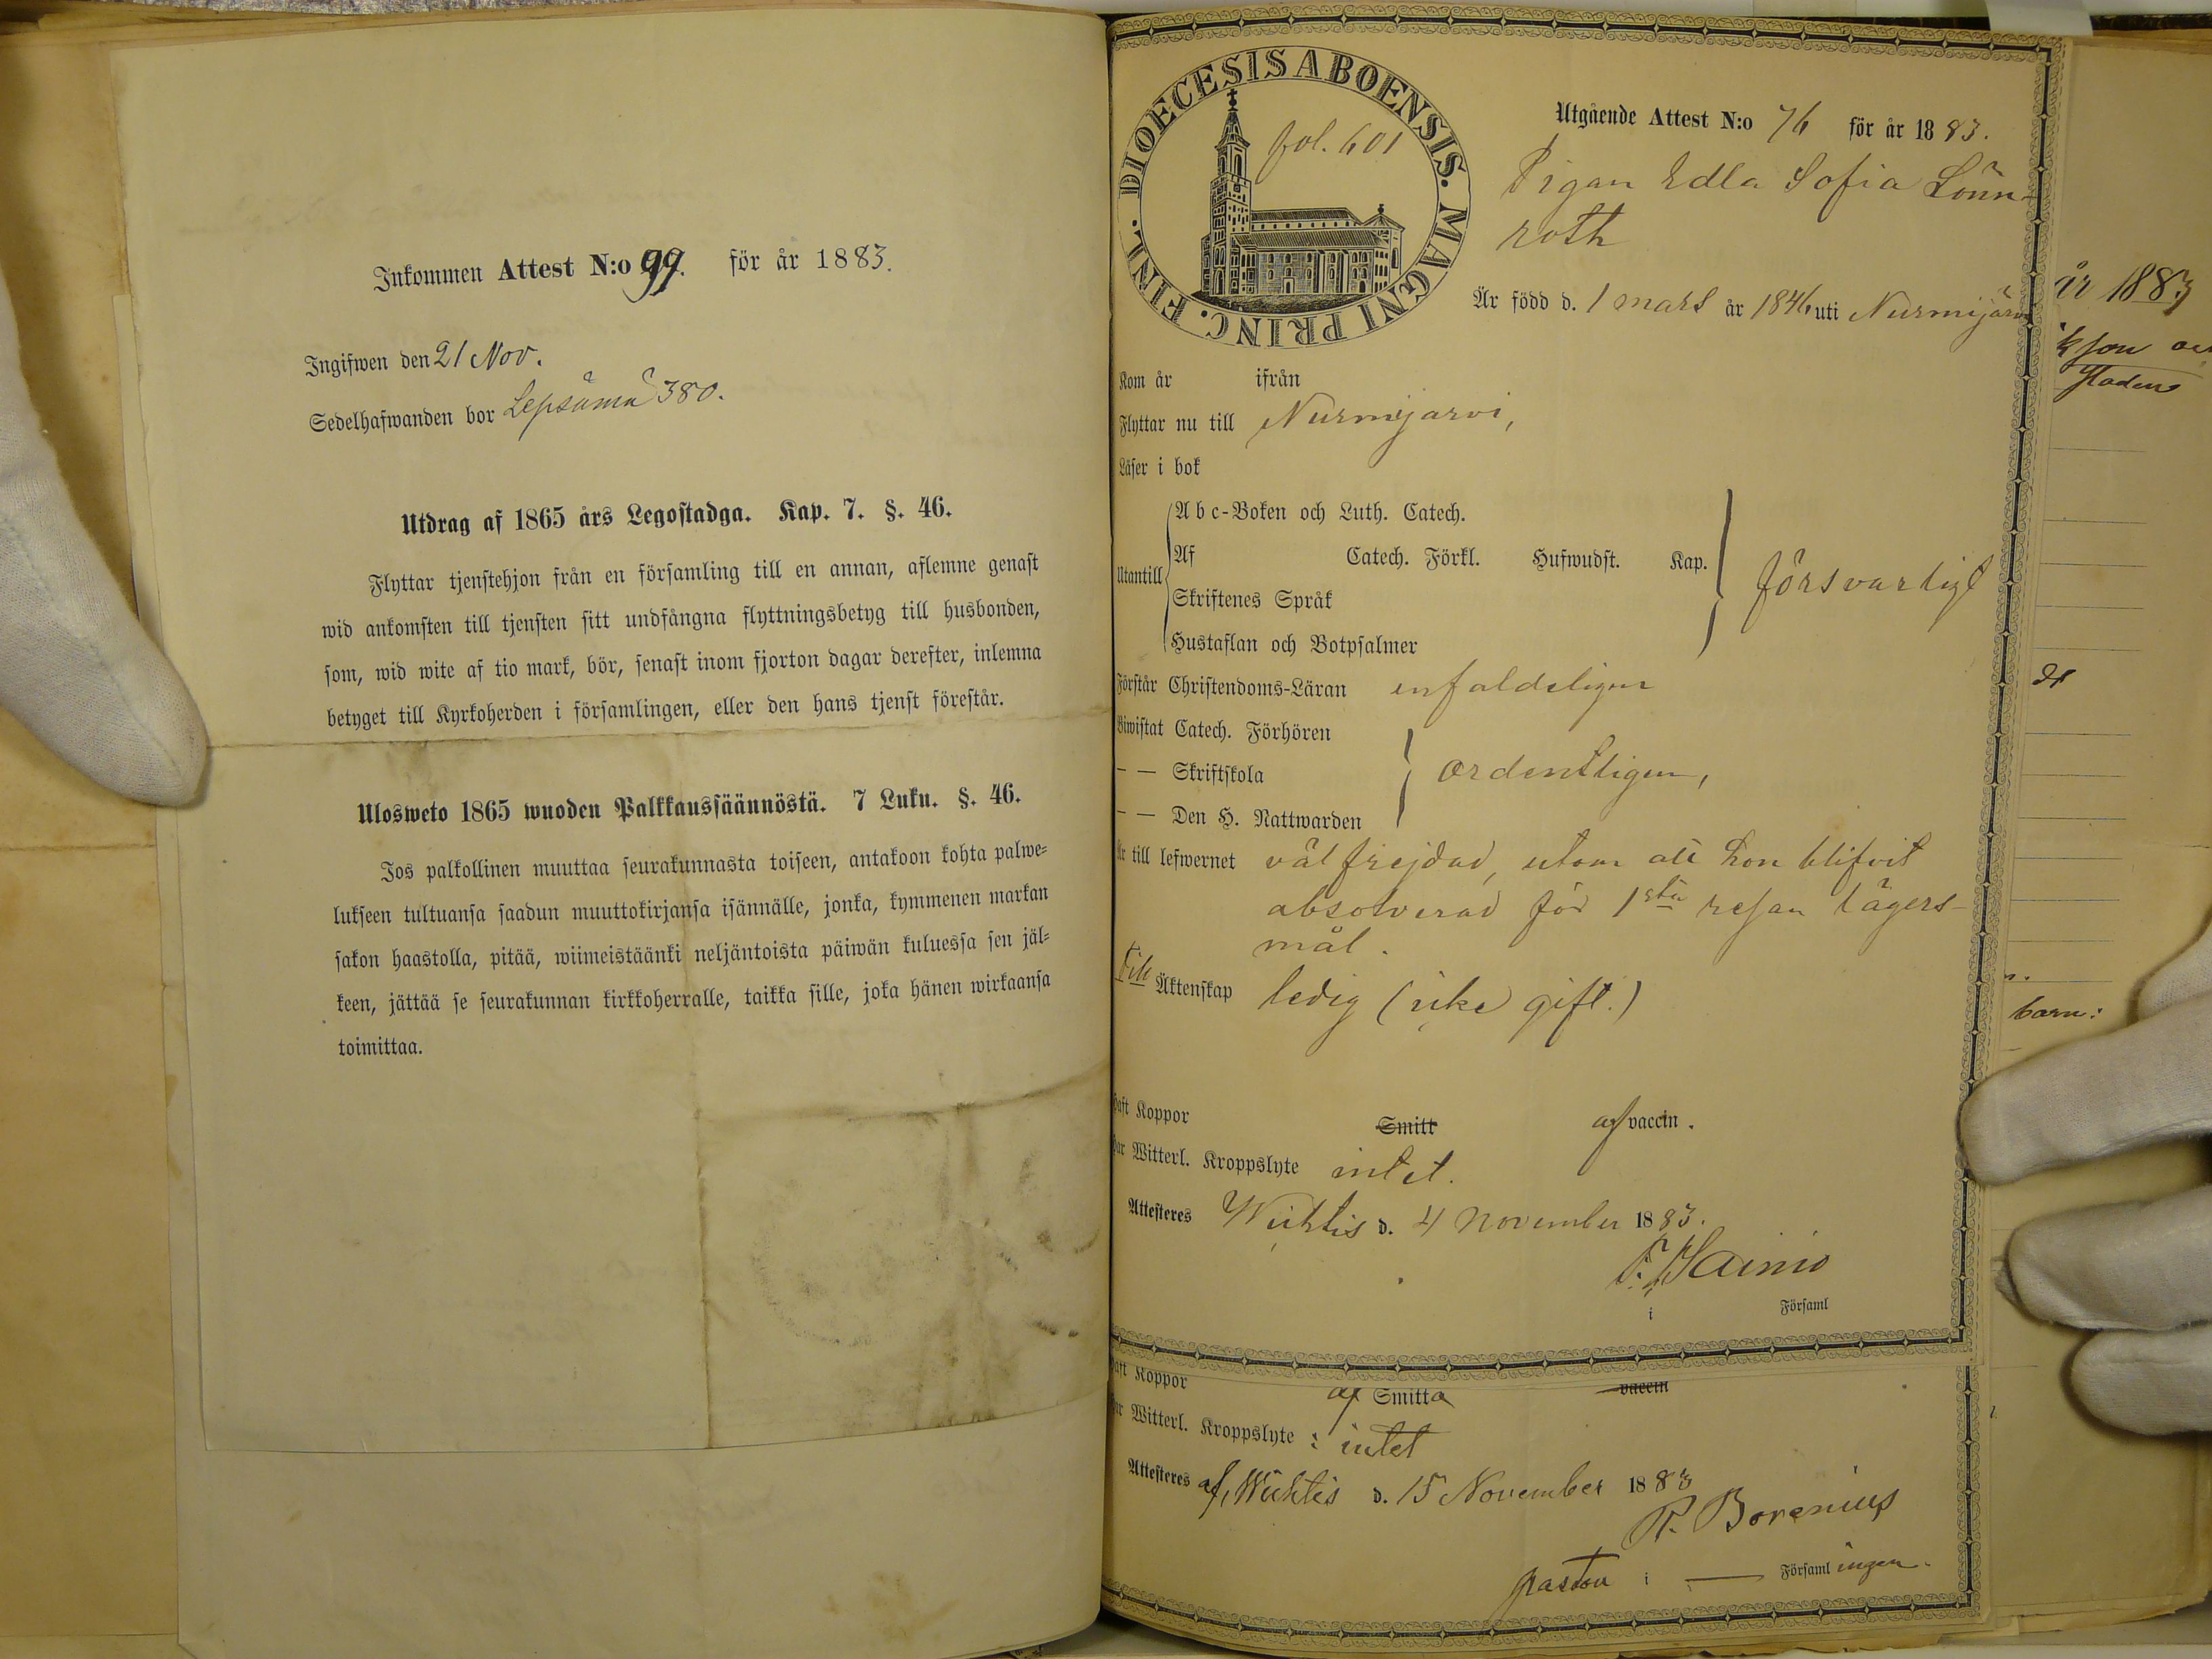 Inkommen Attest N:o 99. för år 1883.
Ingifwen den 21 Nov.
Sedelhafwanden bor Lepsämä 380.
Utdrag af 1865 års Legostadga. Kap. 7. §. 46.
Flyttar tjenstehjon från en församling till en annan, aflemne genast
wid ankomsten till tjensten sitt undfångna flyttningsbetyg till husbonden,
som, wid wite af tio mark, bör, senast inom fjorton dagar derefter, inlemna
betyget till Kyrkoherden i församlingen, eller den hans tjenst förestår.
Ulosweto 1865 wuoden Palkkaussäännöstä. 7 Luku. §. 46.
Jos palkollinen muuttaa seurakunnasta toiseen, antakoon kohta palwe-
lukseen tultuansa saadun muuttokirjansa isännälle, jonka, kymmenen markan
sakon haastolla, pitää, wiimeistäänki neljäntoista päiwän kuluessa sen jäl-
keen, jättää se seurakunnan kirkkoherralle, taikka sille, joka hänen wirkaansa
toimittaa.
DIOECESIS ABOENSIS. MAGNI PRINC. FINL.
fol. 601
Utgående Attest N:o 76 för år 1883.
Pigan Edla Sofia Lönn-
roth
Är född d. 1 mars år 1846 uti Nurmijärvi
Kom år ifrån
Flyttar nu till Nurmijärvi,
Läser i bok
Utantill
A b c-Boken och Luth. Catech.
Af Catech. Förkl. Hufwudst. Kap.
Skriftenes Språk
Hustaflan och Botpsalmer
försvarligt
Förstår Christendoms-Läran enfaldeligen
Biwistat Catech. Förhören
– — Skriftskola
– — Den H. Nattwarden
ordentligen,
Är till lefwernet väl frejdad, utom att hon blifvit
absolverad för 1sta resan lägers-
mål.
Till Äktenskap ledig (icke gift.)
Haft Koppor Smitt af vaccin.
Har Witterl. Kroppslyte intet.
Attesteres Wichtis d. 4 November 1883.
F. Hainio
i Församl
Haft Koppor af Smitta vaccin
Har Witterl. Kroppslyte : intet
Attesteres af, Wichtis d. 15 November 1883
R. Borenius
pastor i — Församlingen.
år 1883
barn: